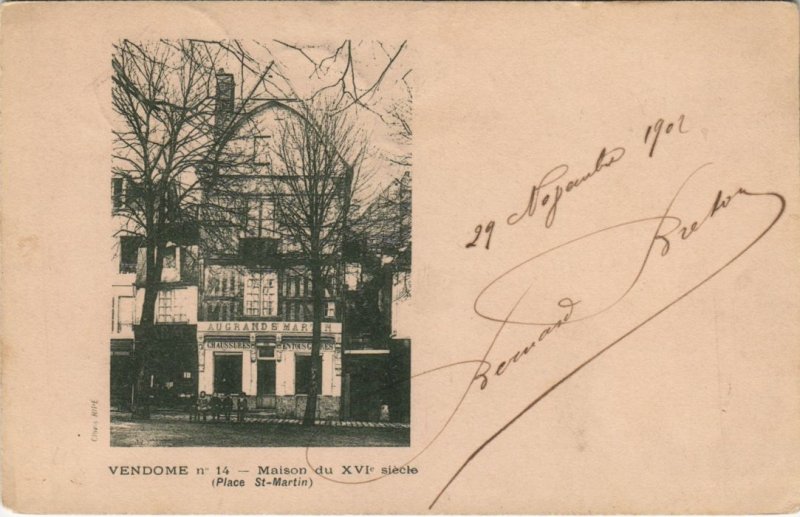 AU GRAND S^T MARTIN
CHAUSSURES EN TOUS GENRES
Clichés RIPÉ
VENDOME n° 14 — Maison du XVIe siècle
(Place St-Martin)
29 Novembre 1902
Bernard Breton